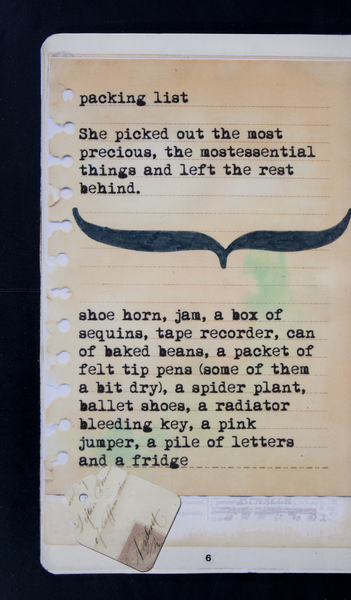 packing list
She picked out the most
precious, the mostessential
things and left the rest
behind.
shoe horn, jam, a box of
sequins, tape recorder, can
of baked beans, a packet of
felt tip pens (some of them
a bit dry), a spider plant,
ballet shoes, a radiator
bleeding key, a pink
jumper, a pile of letters
and a fridge
6